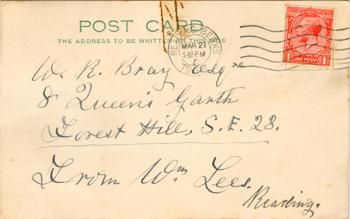 POST CARD
THE ADDRESS TO BE WRITTEN ON THIS SIDE
MAR 21
W. R. Bray Esqre
8 Queen's Garth
Forest Hill, S.E. 23.
From Wm Lees.
Reading.